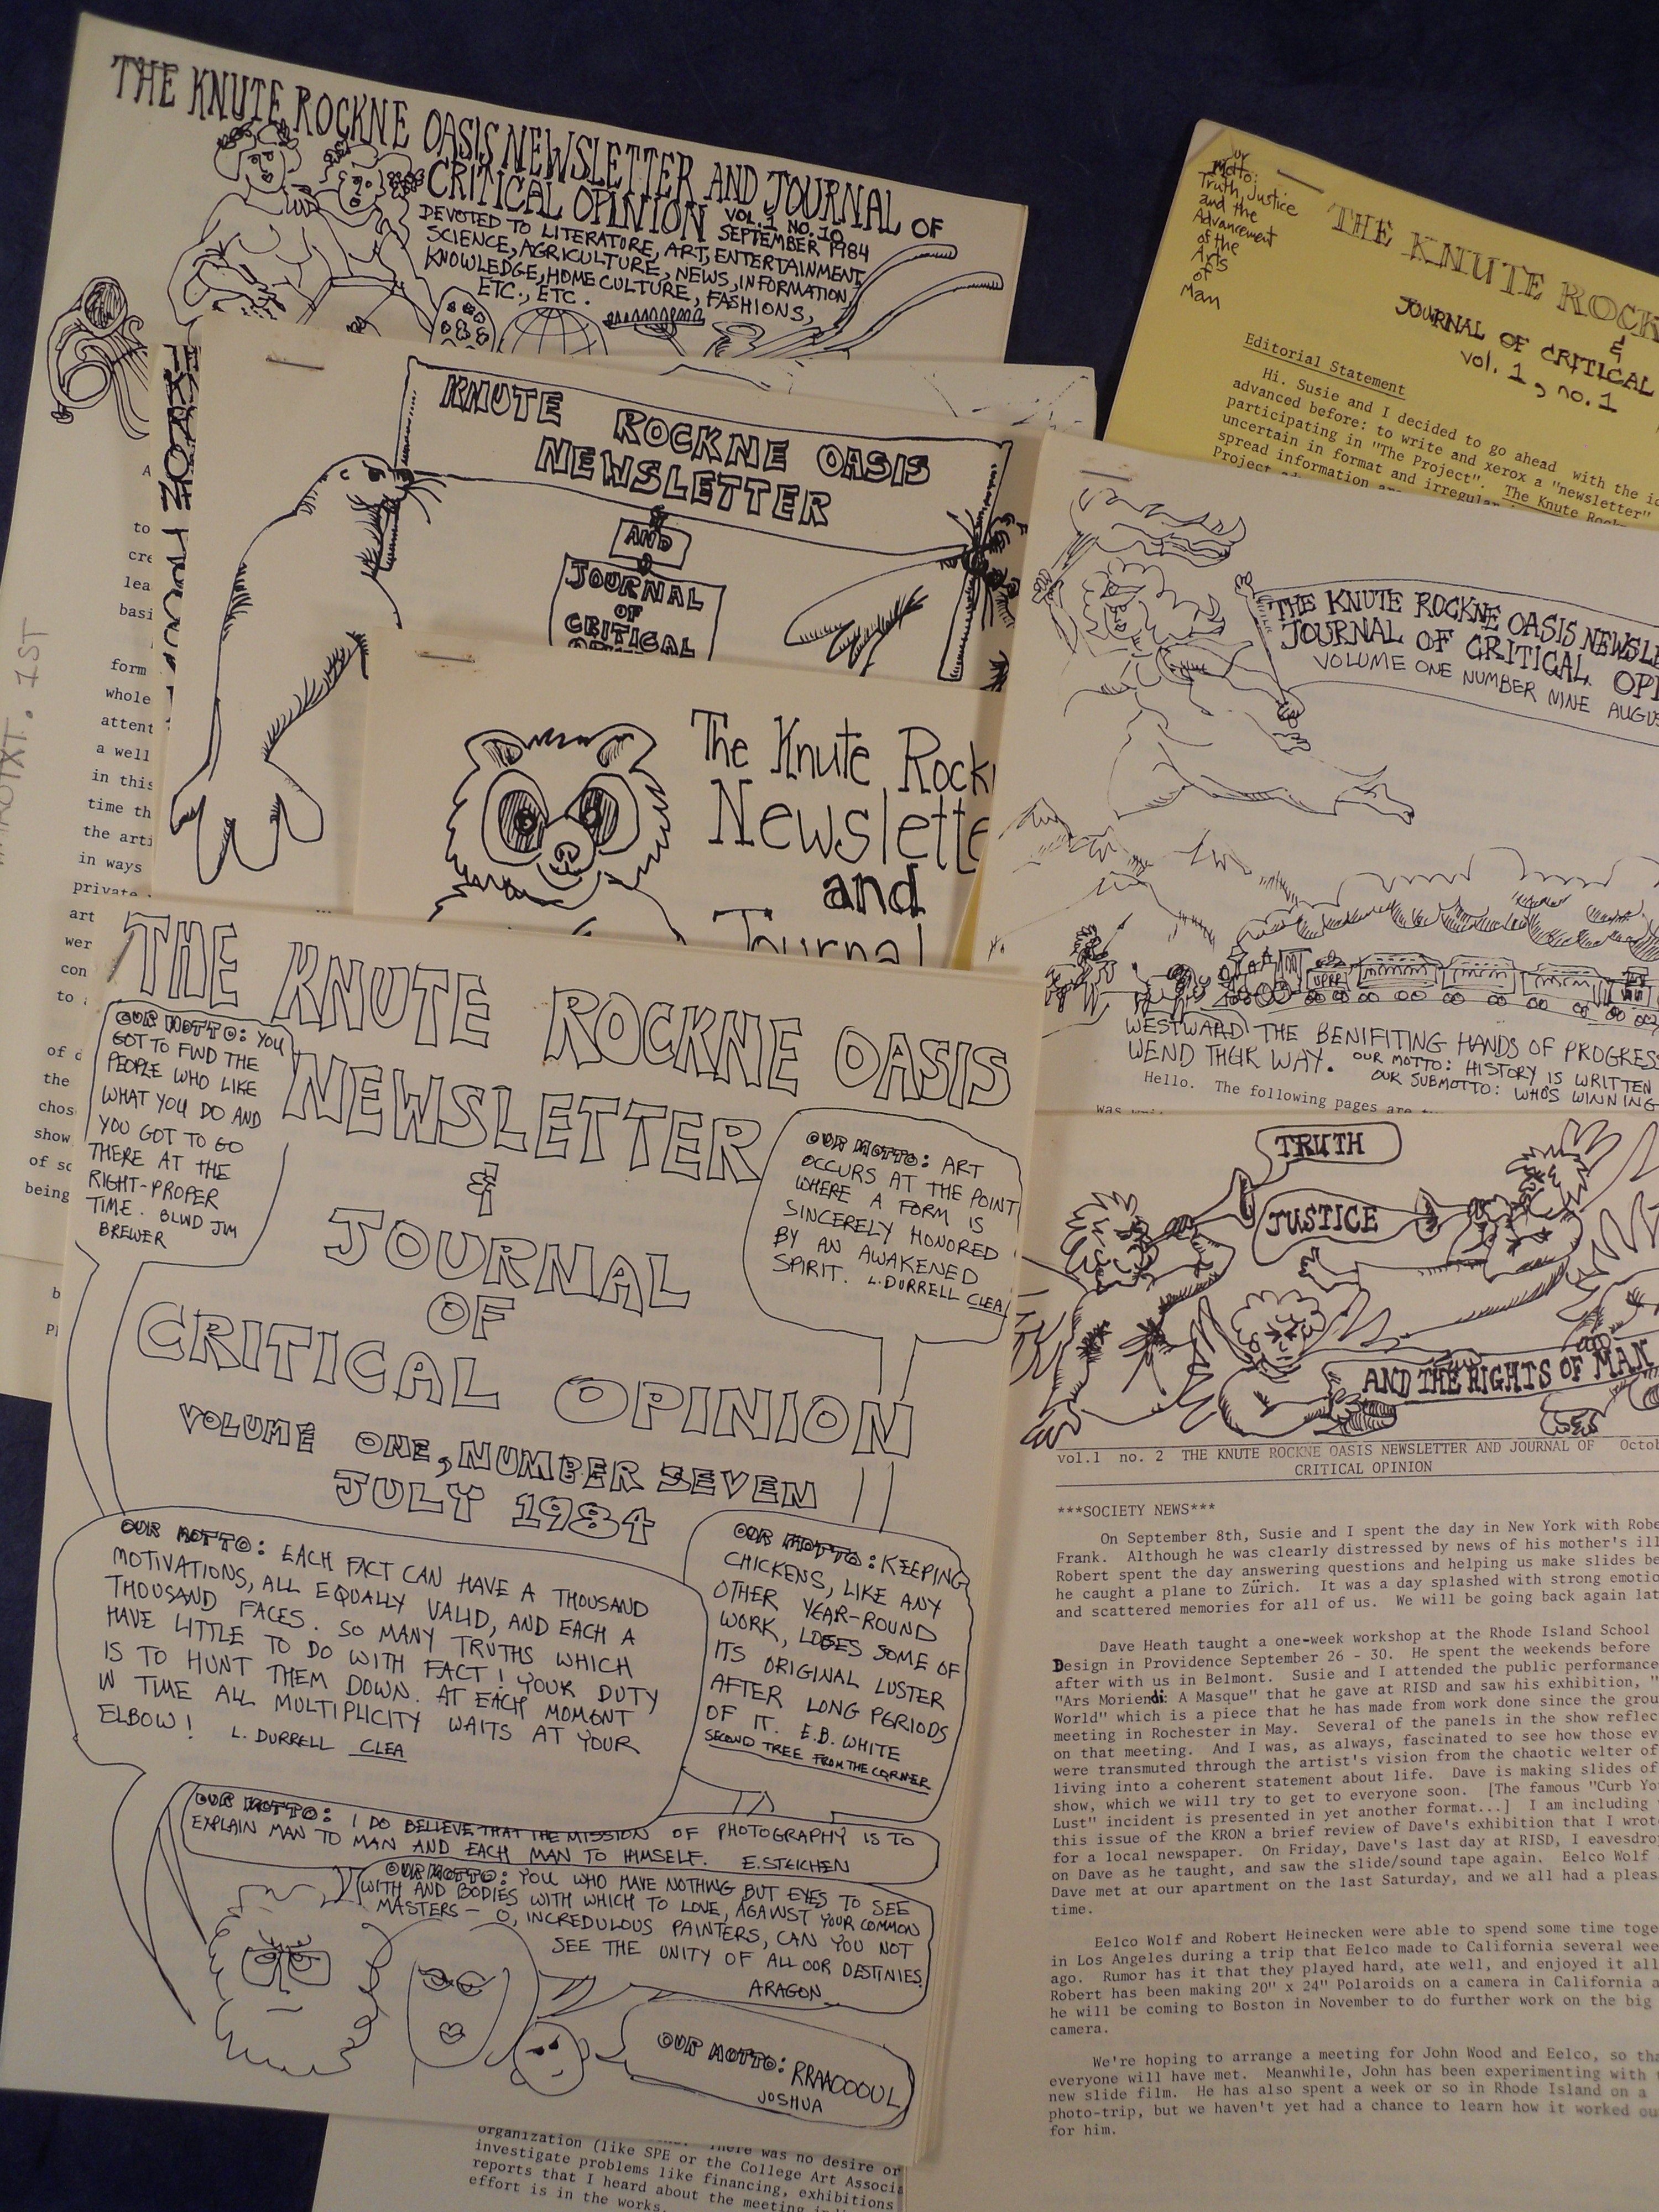 THE KNUTE ROCKNE OASIS NEWSLETTER AND JOURNAL OF
CRITICAL OPINION VOL. 1 NO. 10
SEPTEMBER 1984
DEVOTED TO LITERATURE, ART, ENTERTAINMENT,
SCIENCE, AGRICULTURE, NEWS, INFORMATION,
KNOWLEDGE, HOME CULTURE, FASHIONS,
ETC., ETC.
A
to
cre
lea
basi
form
whole
attent
a well
in this
time th
the arti
in ways
private
art
wer
con
to
of
the
chos
show
of so
being
1ST
KNUTE ROCKNE OASIS
NEWSLETTER
AND
JOURNAL
OF
CRITICAL
The Knute Rock
Newslette
and
Journal
Motto:
Truth, justice
and the
Advancement
of the
Arts
of
Man
THE KNUTE ROCK
&
JOURNAL OF CRITICAL
vol. 1, no. 1
Editorial Statement
Hi. Susie and I decided to go ahead with the id
advanced before: to write and xerox a "newsletter"
participating in "The Project". The Knute Rock
uncertain in format and irregular
spread information
Project
THE KNUTE ROCKNE OASIS NEWSLE
JOURNAL OF CRITICAL OPI
VOLUME ONE NUMBER NINE AUGUS
UPRR
WESTWARD THE BENIFITING HANDS OF PROGRESS
WEND THEIR WAY. OUR MOTTO: HISTORY IS WRITTEN
OUR SUBMOTTO: WHO'S WINNING
Hello. The following pages are
was
THE KNUTE ROCKNE OASIS
NEWSLETTER
&
JOURNAL
OF
CRITICAL OPINION
VOLUME ONE, NUMBER SEVEN
JULY 1984
OUR MOTTO: YOU
GOT TO FIND THE
PEOPLE WHO LIKE
WHAT YOU DO AND
YOU GOT TO GO
THERE AT THE
RIGHT-PROPER
TIME. BLIND JIM
BREWER
OUR MOTTO: ART
OCCURS AT THE POINT
WHERE A FORM IS
SINCERELY HONORED
BY AN AWAKENED
SPIRIT. L. DURRELL CLEA
OUR MOTTO: EACH FACT CAN HAVE A THOUSAND
MOTIVATIONS, ALL EQUALLY VALID, AND EACH A
THOUSAND FACES. SO MANY TRUTHS WHICH
HAVE LITTLE TO DO WITH FACT! YOUR DUTY
IS TO HUNT THEM DOWN. AT EACH MOMENT
IN TIME ALL MULTIPLICITY WAITS AT YOUR
ELBOW! L. DURRELL CLEA
OUR MOTTO: KEEPING
CHICKENS, LIKE ANY
OTHER YEAR-ROUND
WORK, LOSES SOME OF
ITS ORIGINAL LUSTER
AFTER LONG PERIODS
OF IT. E.B. WHITE
SECOND TREE FROM THE CORNER
OUR MOTTO: I DO BELIEVE THAT THE MISSION OF PHOTOGRAPHY IS TO
EXPLAIN MAN TO MAN AND EACH MAN TO HIMSELF. E. STEICHEN
OUR MOTTO: YOU WHO HAVE NOTHING BUT EYES TO SEE
WITH AND BODIES WITH WHICH TO LOVE, AGAINST YOUR COMMON
MASTERS - O, INCREDULOUS PAINTERS, CAN YOU NOT
SEE THE UNITY OF ALL OUR DESTINIES.
ARAGON
OUR MOTTO: RRAAOOOUL
JOSHUA
TRUTH
JUSTICE
AND THE RIGHTS OF MAN
vol.1 no. 2 THE KNUTE ROCKNE OASIS NEWSLETTER AND JOURNAL OF Octob
CRITICAL OPINION
***SOCIETY NEWS***
On September 8th, Susie and I spent the day in New York with Robe
Frank. Although he was clearly distressed by news of his mother's ill
Robert spent the day answering questions and helping us make slides be
he caught a plane to Zürich. It was a day splashed with strong emotio
and scattered memories for all of us. We will be going back again lat
Dave Heath taught a one-week workshop at the Rhode Island School
Design in Providence September 26 - 30. He spent the weekends before
after with us in Belmont. Susie and I attended the public performance
"Ars Moriendi: A Masque" that he gave at RISD and saw his exhibition, "
World" which is a piece that he has made from work done since the grou
meeting in Rochester in May. Several of the panels in the show reflec
on that meeting. And I was, as always, fascinated to see how those ev
were transmuted through the artist's vision from the chaotic welter of
living into a coherent statement about life. Dave is making slides of
show, which we will try to get to everyone soon. [The famous "Curb Yo
Lust" incident is presented in yet another format...] I am including
this issue of the KRON a brief review of Dave's exhibition that I wrot
for a local newspaper. On Friday, Dave's last day at RISD, I eavesdro
on Dave as he taught, and saw the slide/sound tape again. Eelco Wolf
Dave met at our apartment on the last Saturday, and we all had a pleas
time.
Eelco Wolf and Robert Heinecken were able to spend some time toge
in Los Angeles during a trip that Eelco made to California several wee
ago. Rumor has it that they played hard, ate well, and enjoyed it all
Robert has been making 20" x 24" Polaroids on a camera in California a
he will be coming to Boston in November to do further work on the big
camera.
We're hoping to arrange a meeting for John Wood and Eelco, so tha
everyone will have met. Meanwhile, John has been experimenting with
new slide film. He has also spent a week or so in Rhode Island on a
photo-trip, but we haven't yet had a chance to learn how it worked ou
for him.
There was no desire or
organization (like SPE or the College Art Associa
investigate problems like financing, exhibitions
reports that I heard about the meeting
effort is in the works.